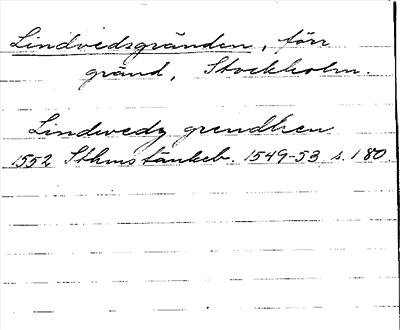 Lindvidsgränden, förr
gränd, Stockholm.
Lindwedz grendhen
1552 Sthms tänkeb. 1549-53 s. 180.